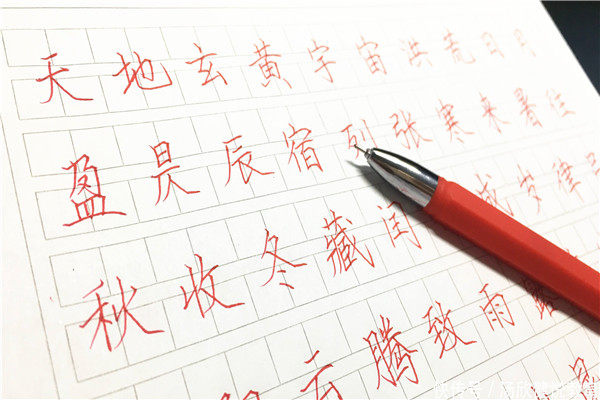 天地玄黄宇宙洪荒日月
盈昃辰宿列张寒来暑往
秋收冬藏闰成岁律
云腾致雨
快传号